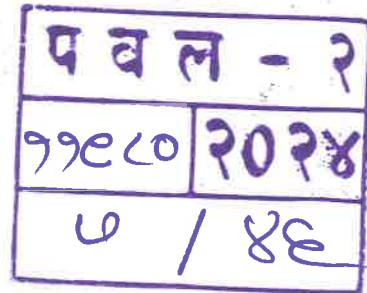 पवल - २
११९८० २०२४
७ / ४६